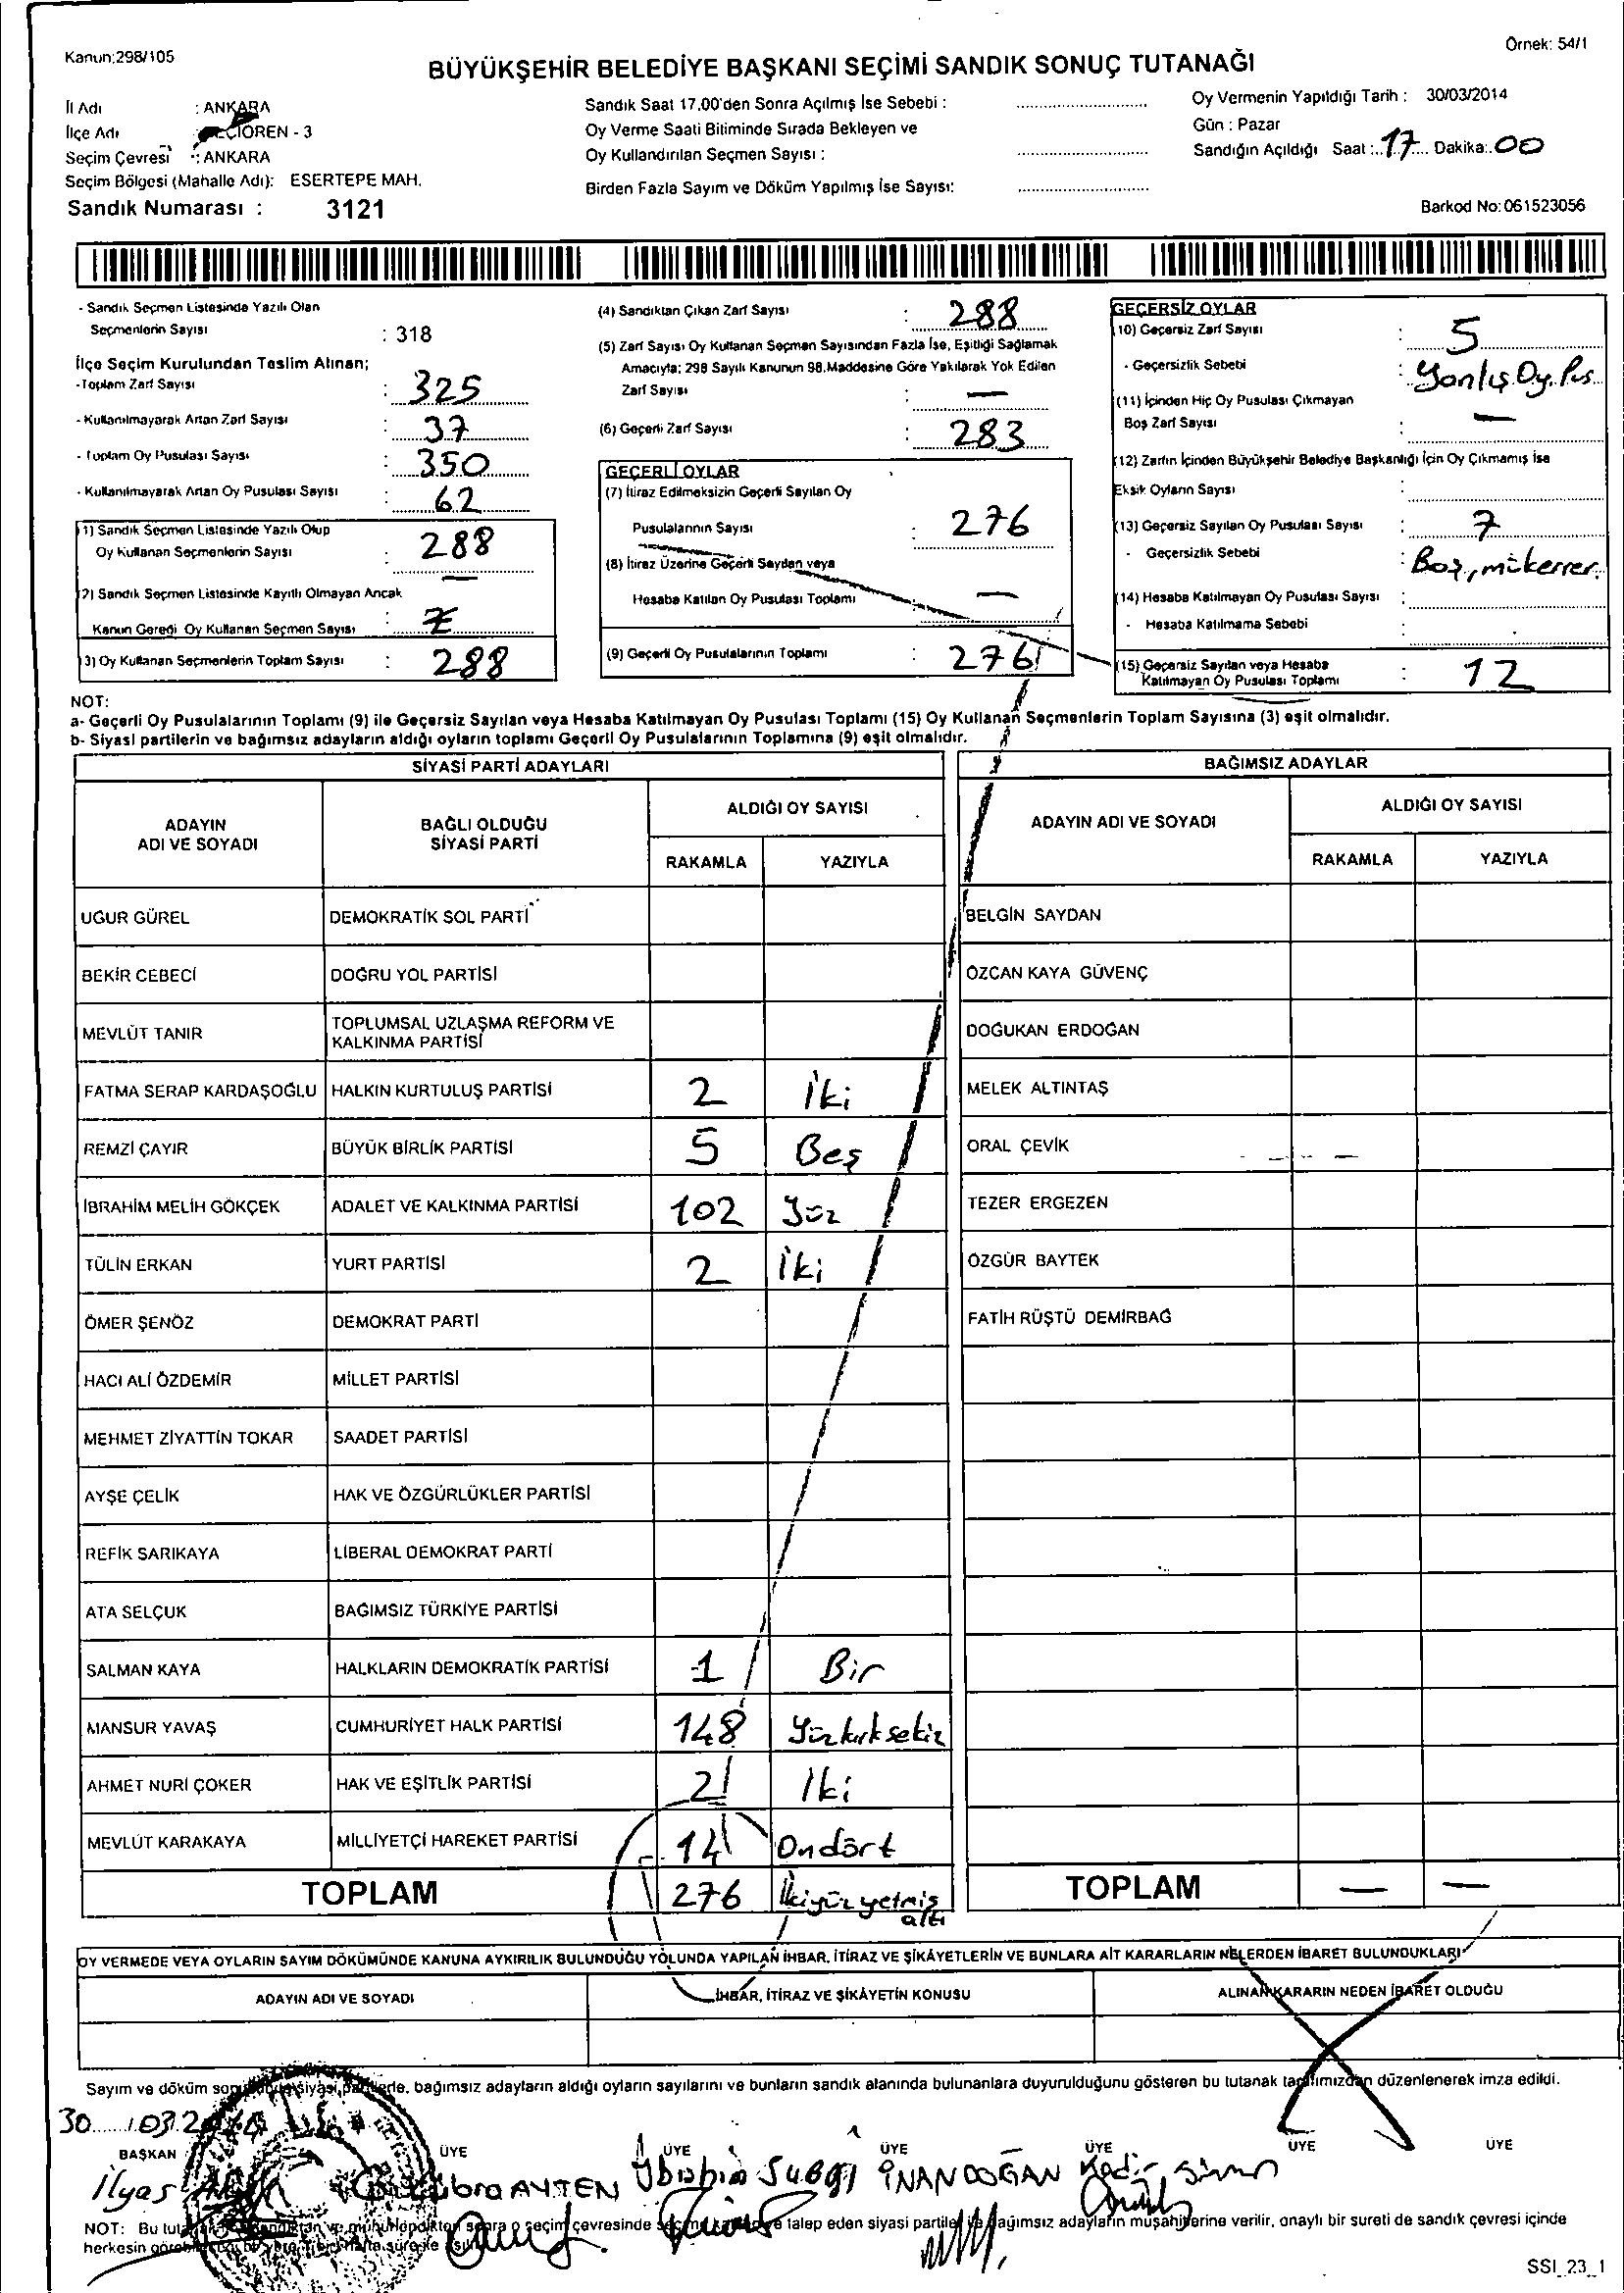 Kanun:298/105
Örnek: 54/1
BÜYÜKŞEHİR BELEDİYE BAŞKANI SEÇİMİ SANDIK SONUÇ TUTANAĞI
İl Adı : ANKARA
İlçe Adı : KEÇİÖREN - 3
Seçim Çevresi : ANKARA
Seçim Bölgesi (Mahalle Adı): ESERTEPE MAH.
Sandık Numarası : 3121
Sandık Saat 17.00'den Sonra Açılmış İse Sebebi :
Oy Verme Saati Bitiminde Sırada Bekleyen ve
Oy Kullandırılan Seçmen Sayısı :
Birden Fazla Sayım ve Döküm Yapılmış İse Sayısı:
Oy Vermenin Yapıldığı Tarih : 30/03/2014
Gün : Pazar
Sandığın Açıldığı Saat : 17 Dakika: 00
Barkod No:061523056
- Sandık Seçmen Listesinde Yazılı Olan
Seçmenlerin Sayısı : 318
İlçe Seçim Kurulundan Teslim Alınan;
-Toplam Zarf Sayısı : 325
- Kullanılmayarak Artan Zarf Sayısı : 37
- Toplam Oy Pusulası Sayısı : 350
- Kullanılmayarak Artan Oy Pusulası Sayısı : 62
(1) Sandık Seçmen Listesinde Yazılı Olup
Oy Kullanan Seçmenlerin Sayısı : 288
(2) Sandık Seçmen Listesinde Kayıtlı Olmayan Ancak
Kanun Gereği Oy Kullanan Seçmen Sayısı :
(3) Oy Kullanan Seçmenlerin Toplam Sayısı : 288
(4) Sandıktan Çıkan Zarf Sayısı : 288
(5) Zarf Sayısı Oy Kullanan Seçmen Sayısından Fazla İse, Eşitliği Sağlamak
Amacıyla; 298 Sayılı Kanunun 98.Maddesine Göre Yakılarak Yok Edilen
Zarf Sayısı : —
(6) Geçerli Zarf Sayısı : 283
GEÇERLİ OYLAR
(7) İtiraz Edilmeksizin Geçerli Sayılan Oy
Pusulalarının Sayısı : 276
(8) İtiraz Üzerine Geçerli Sayılan veya
Hesaba Katılan Oy Pusulası Toplamı : —
(9) Geçerli Oy Pusulalarının Toplamı : 276
GEÇERSİZ OYLAR
(10) Geçersiz Zarf Sayısı : 5
- Geçersizlik Sebebi : Yanlış Oy. Pus.
(11) İçinden Hiç Oy Pusulası Çıkmayan
Boş Zarf Sayısı : —
(12) Zarfın İçinden Büyükşehir Belediye Başkanlığı İçin Oy Çıkmamış İse
Eksik Oyların Sayısı :
(13) Geçersiz Sayılan Oy Pusulası Sayısı : 7
- Geçersizlik Sebebi : Boş, mükerrer.
(14) Hesaba Katılmayan Oy Pusulası Sayısı :
- Hesaba Katılmama Sebebi :
(15) Geçersiz Sayılan veya Hesaba
Katılmayan Oy Pusulası Toplamı : 12
NOT:
a- Geçerli Oy Pusulalarının Toplamı (9) ile Geçersiz Sayılan veya Hesaba Katılmayan Oy Pusulası Toplamı (15) Oy Kullanan Seçmenlerin Toplam Sayısına (3) eşit olmalıdır.
b- Siyasi partilerin ve bağımsız adayların aldığı oyların toplamı Geçerli Oy Pusulalarının Toplamına (9) eşit olmalıdır.
SİYASİ PARTİ ADAYLARI
ADAYIN ADI VE SOYADI BAĞLI OLDUĞU SİYASİ PARTİ ALDIĞI OY SAYISI
RAKAMLA YAZIYLA
UĞUR GÜREL DEMOKRATİK SOL PARTİ
BEKİR CEBECİ DOĞRU YOL PARTİSİ
MEVLÜT TANIR TOPLUMSAL UZLAŞMA REFORM VE KALKINMA PARTİSİ
FATMA SERAP KARDAŞOĞLU HALKIN KURTULUŞ PARTİSİ 2 İki
REMZİ ÇAYIR BÜYÜK BİRLİK PARTİSİ 5 Beş
İBRAHİM MELİH GÖKÇEK ADALET VE KALKINMA PARTİSİ 102 Yüz
TÜLİN ERKAN YURT PARTİSİ 2 İki
ÖMER ŞENÖZ DEMOKRAT PARTİ
HACI ALİ ÖZDEMİR MİLLET PARTİSİ
MEHMET ZİYATTİN TOKAR SAADET PARTİSİ
AYŞE ÇELİK HAK VE ÖZGÜRLÜKLER PARTİSİ
REFİK SARIKAYA LİBERAL DEMOKRAT PARTİ
ATA SELÇUK BAĞIMSIZ TÜRKİYE PARTİSİ
SALMAN KAYA HALKLARIN DEMOKRATİK PARTİSİ 1 Bir
MANSUR YAVAŞ CUMHURİYET HALK PARTİSİ 148 Yüzkırksekiz
AHMET NURİ ÇOKER HAK VE EŞİTLİK PARTİSİ 2 İki
MEVLÜT KARAKAYA MİLLİYETÇİ HAREKET PARTİSİ 14 Ondört
TOPLAM 276 İkiyüzyetmiş altı
BAĞIMSIZ ADAYLAR
ADAYIN ADI VE SOYADI ALDIĞI OY SAYISI
RAKAMLA YAZIYLA
BELGİN SAYDAN
ÖZCAN KAYA GÜVENÇ
DOĞUKAN ERDOĞAN
MELEK ALTINTAŞ
ORAL ÇEVİK
TEZER ERGEZEN
ÖZGÜR BAYTEK
FATİH RÜŞTÜ DEMİRBAĞ
TOPLAM — —
OY VERMEDE VEYA OYLARIN SAYIM DÖKÜMÜNDE KANUNA AYKIRILIK BULUNDUĞU YOLUNDA YAPILAN İHBAR, İTİRAZ VE ŞİKÂYETLERİN VE BUNLARA AİT KARARLARIN NELERDEN İBARET BULUNDUKLARI
ADAYIN ADI VE SOYADI İHBAR, İTİRAZ VE ŞİKÂYETİN KONUSU ALINAN KARARIN NEDEN İBARET OLDUĞU
Sayım ve döküm bağımsız adayların aldığı oyların sayılarını ve bunların sandık alanında bulunanlara duyurulduğunu gösteren bu tutanak tarafımızdan düzenlenerek imza edildi.
30 /03/
BAŞKAN ÜYE ÜYE ÜYE ÜYE ÜYE ÜYE
İlyas Kübra AYTEN İbrahim SUBAŞI İNAN DOĞAN Kadir
NOT: Bu sonra o seçim çevresinde talep eden siyasi partiler ve bağımsız adayların müşahitlerine verilir, onaylı bir sureti de sandık çevresi içinde
herkesin
SSI_23_1